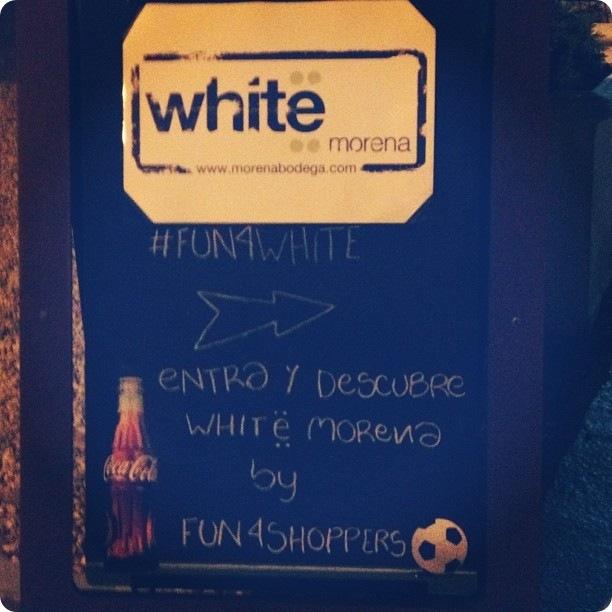 white
morena
www.morenabodega.com
#FUN4WHITE
ENTRA Y DESCUBRE
WHITË MORENA
by
FUN4SHOPPERS
Coca-Cola